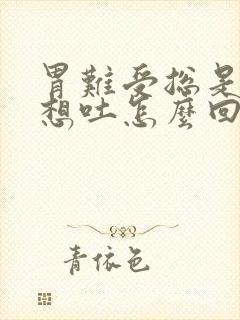 胃難受總是
想吐怎麼回
青依色